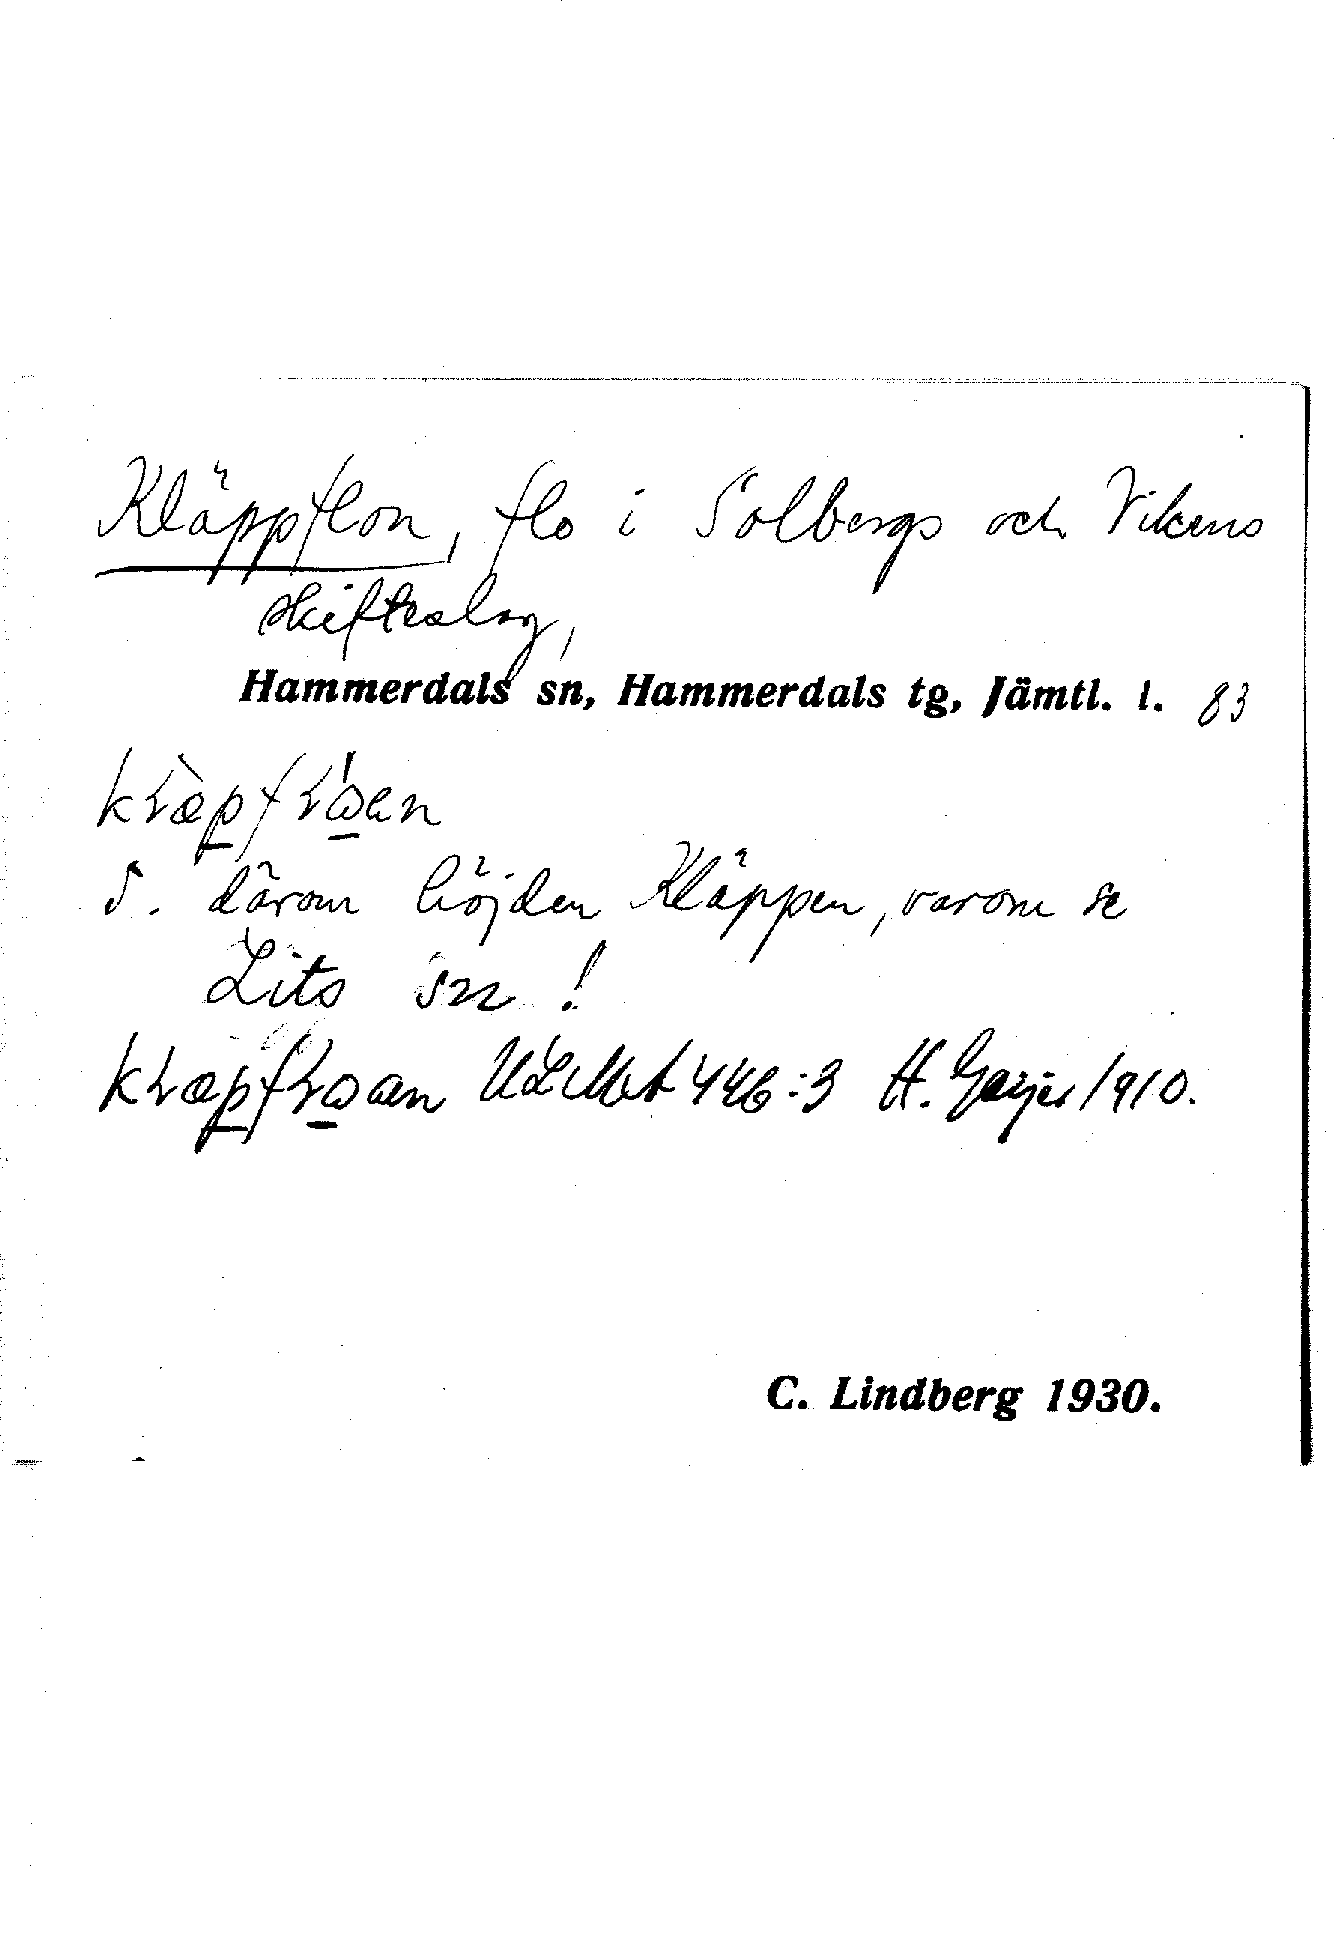 Kläppflon, flo i Solbergs och Vikens
skifteslag,
Hammerdals sn, Hammerdals tg, Jämtl. l. 83
S. därom höjden Kläppen, varom se
Lits sn!
ULMA 446:3 H. Geijer 1910.
C. Lindberg 1930.